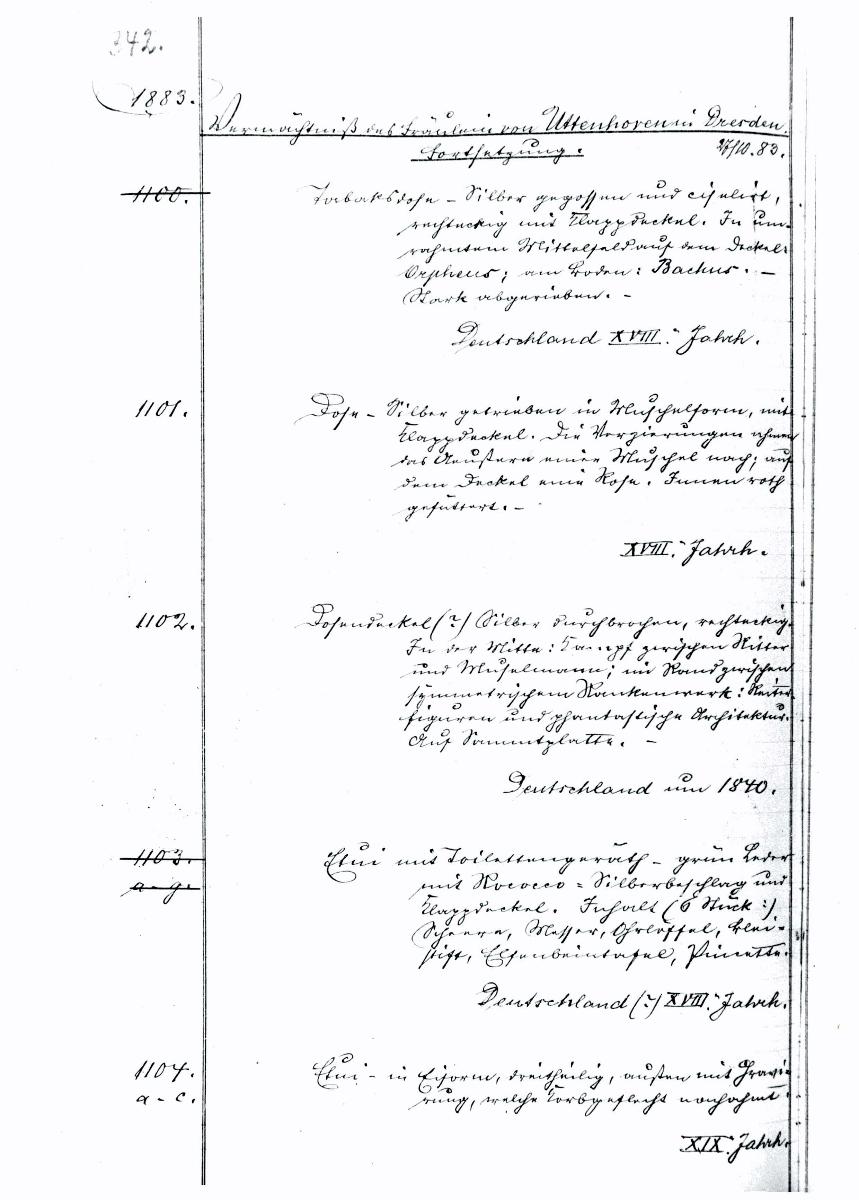 342.
1883.
Vermächtniß des Fräulein von Uttenhoven in Dresden.
Fortsetzung.
27/10. 83.
1100.
Tabaksdose – Silber gegossen und ciselirt,
rechteckig mit Klappdeckel. In um-
rahmtem Mittelfeld auf dem Deckel:
Orpheus; am Boden: Bachus. –
Stark abgerieben. –
Deutschland XVIII. Jahrh.
1101.
Dose – Silber getrieben in Muschelform, mit
Klappdeckel. Die Verzierungen ahmen
das Aeußere einer Muschel nach; auf
dem Deckel eine Rose. Innen roth
gefüttert. –
XVIII. Jahrh.
1102.
Dosendeckel (?) Silber durchbrochen, rechteckig.
In der Mitte: Kampf zwischen Ritter
und Muselmann; im Rand zwischen
symmetrischem Rankenwerk: Reiter-
figuren und phantastische Architektur.
Auf Sammtplatte. –
Deutschland um 1840.
1103.
a – g.
Etui mit Toilettengeräth – grün Leder
mit Rococco = Silberbeschlag und
Klappdeckel. Inhalt (6 Stück:)
Scheere, Messer, Ohrlöffel, Blei-
stift, Elfenbeintafel, Pincette.
Deutschland (?) XVIII. Jahrh.
1104.
a – c.
Etui – in Eiform, dreitheilig, außen mit Gravi-
rung, welche Korbgeflecht nachahmt.
XIX. Jahrh.